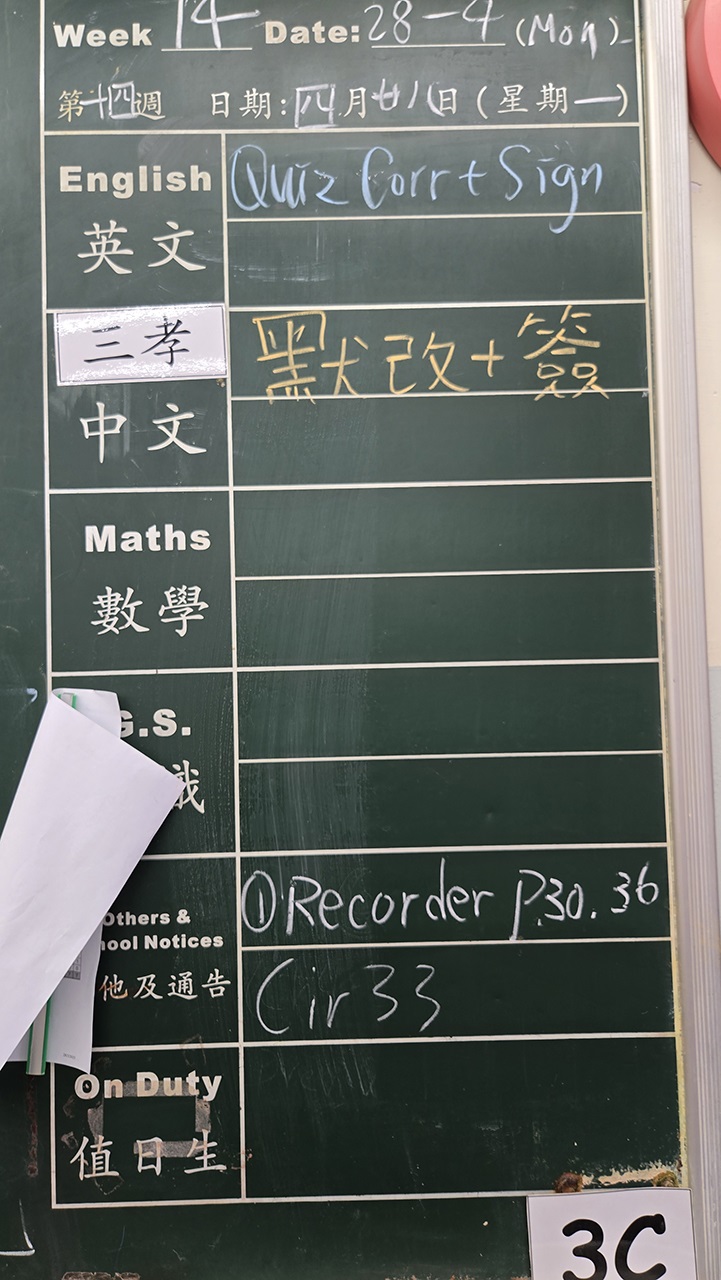 Week 14 Date: 28-4 (Mon)
第十四週 日期:四月廿八日(星期一)
English Quiz Corr + Sign
英文
三孝 默改+簽
中文
Maths
數學
G.S.
識
Others & ①Recorder P.30.36
ool Notices
他及通告 Cir 33
On Duty
值日生
3C